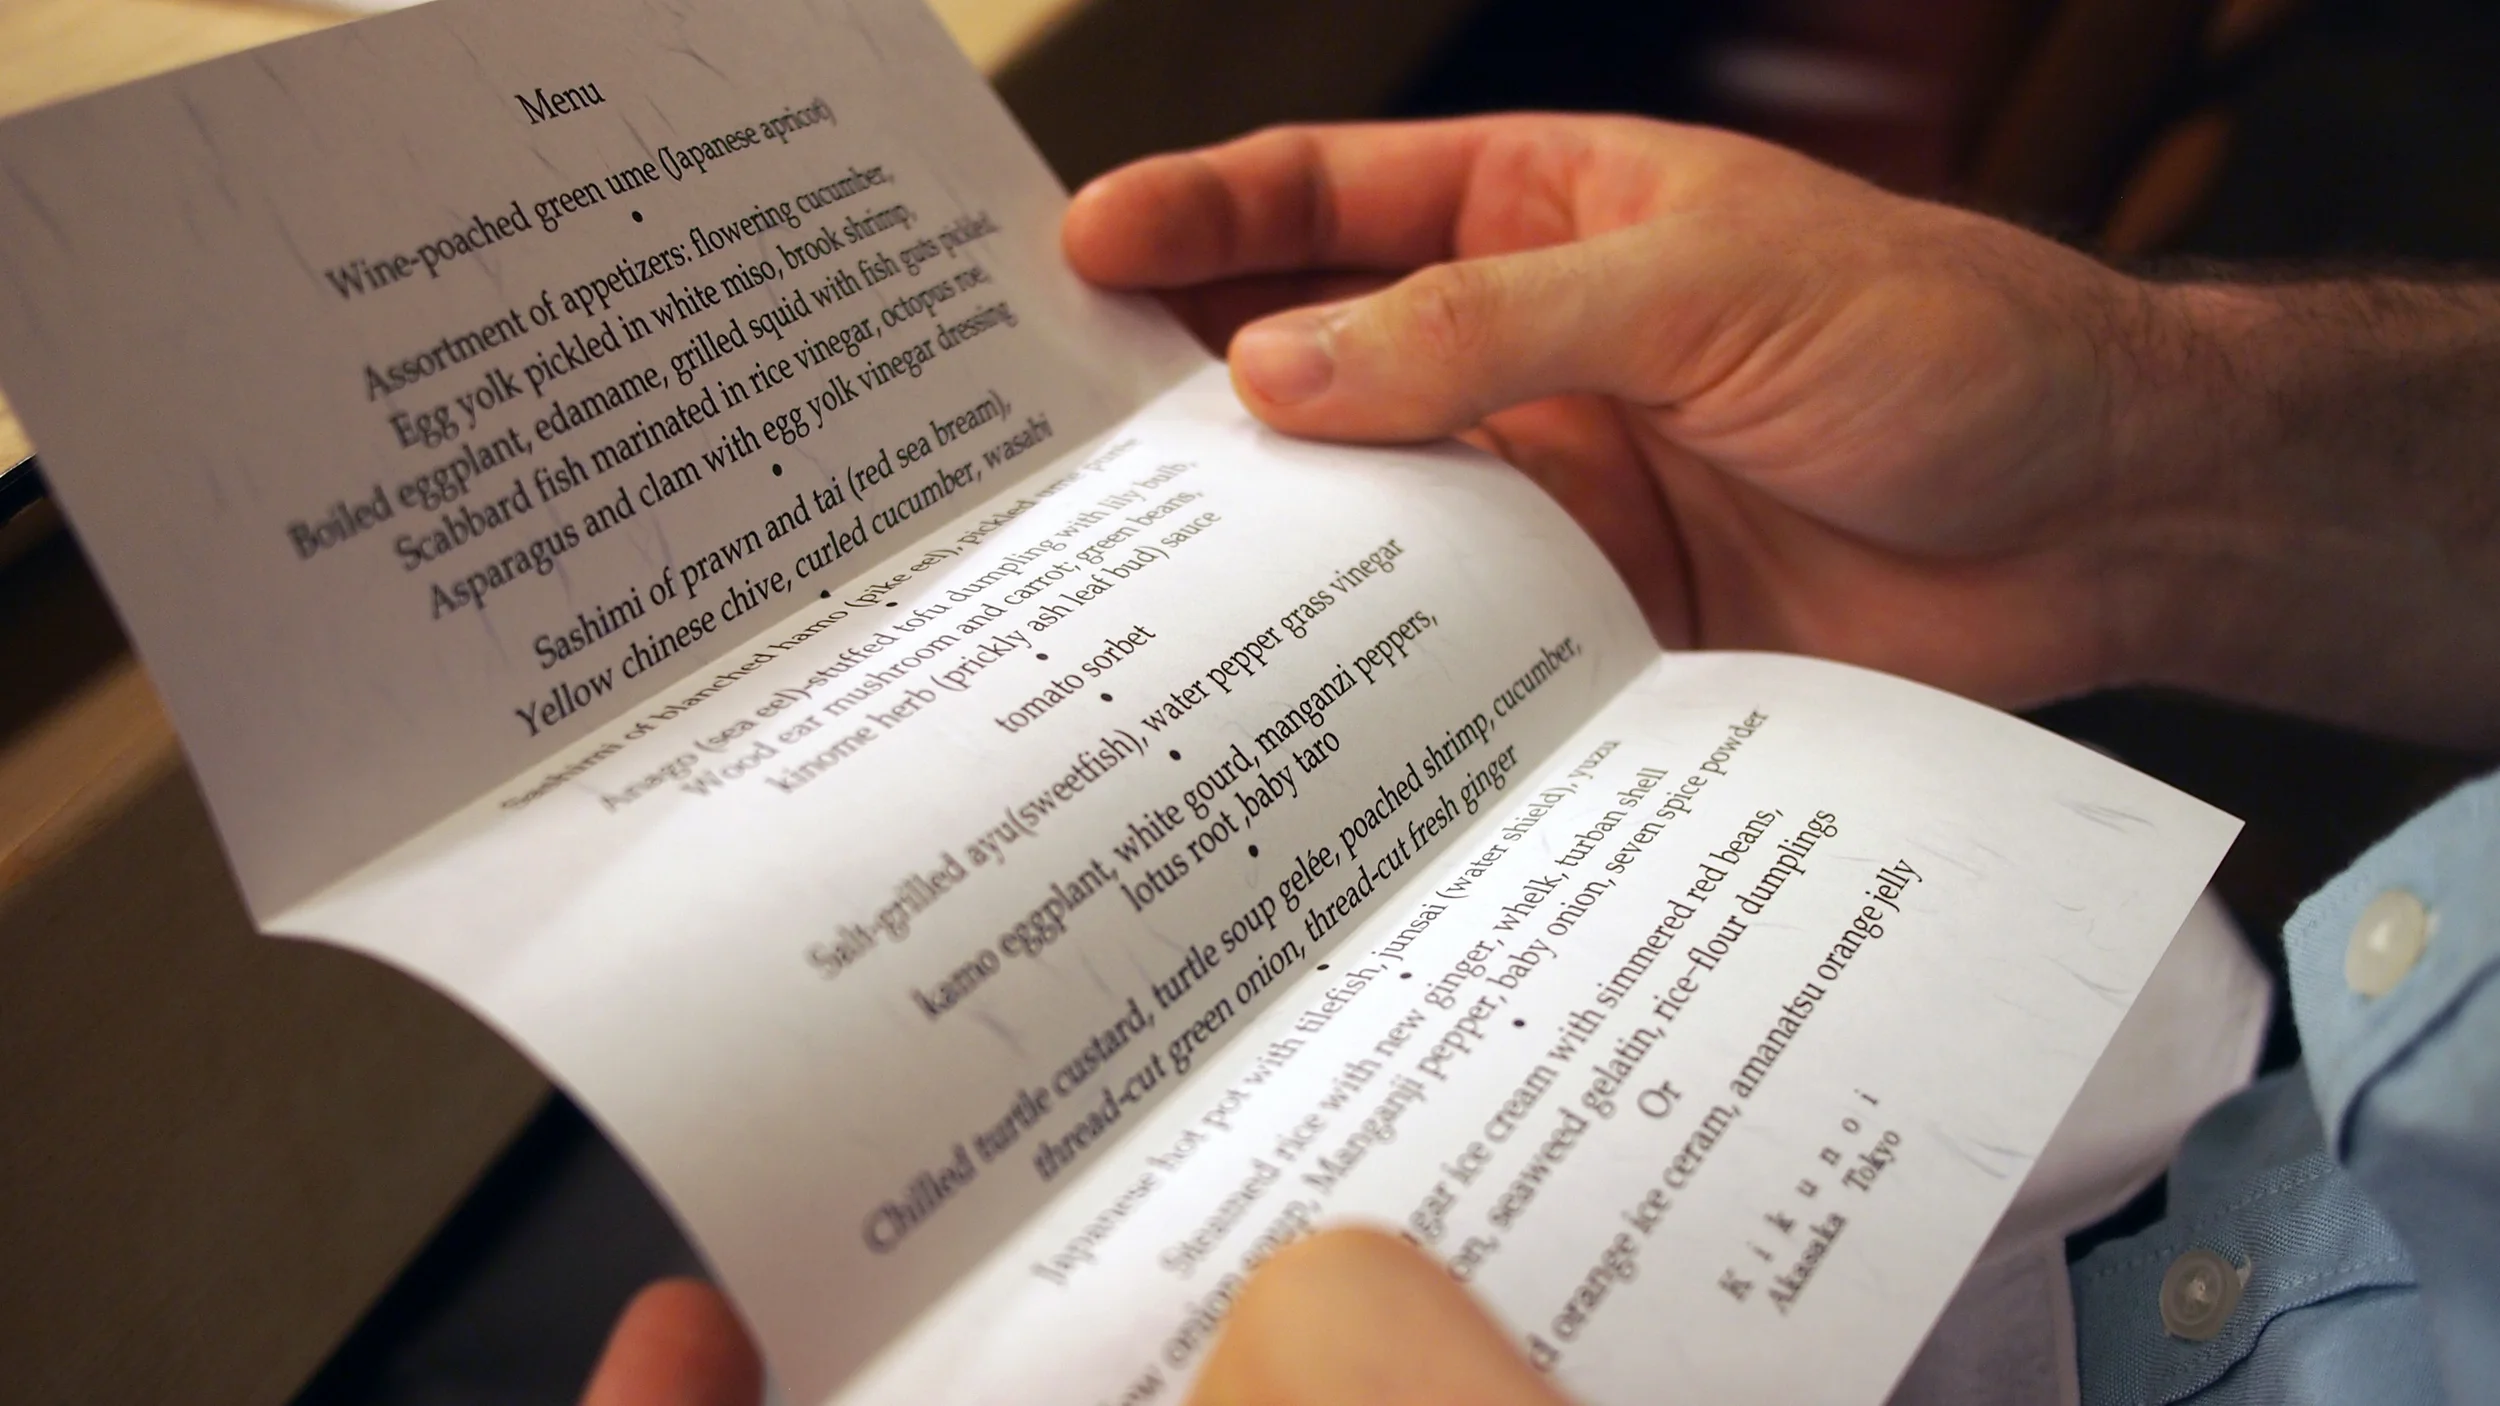 Menu
Wine-poached green ume (Japanese apricot)
•
Assortment of appetizers: flowering cucumber,
Egg yolk pickled in white miso, brook shrimp,
Boiled eggplant, edamame, grilled squid with fish guts pickled,
Scabbard fish marinated in rice vinegar, octopus roe,
Asparagus and clam with egg yolk vinegar dressing
•
Sashimi of prawn and tai (red sea bream),
Yellow chinese chive, curled cucumber, wasabi
•
Sashimi of blanched hamo (pike eel), pickled ume puree
•
Anago (sea eel)-stuffed tofu dumpling with lily bulb,
Wood ear mushroom and carrot, green beans,
kinome herb (prickly ash leaf bud) sauce
•
tomato sorbet
•
Salt-grilled ayu(sweetfish), water pepper grass vinegar
•
kamo eggplant, white gourd, manganzi peppers,
lotus root ,baby taro
•
Chilled turtle custard, turtle soup gelée, poached shrimp, cucumber,
thread-cut green onion, thread-cut fresh ginger
•
Japanese hot pot with tilefish, junsai (water shield), yuzu
•
Steamed rice with new ginger, whelk, turban shell
onion soup, Manganji pepper, baby onion, seven spice powder
•
ice cream with simmered red beans,
seaweed gelatin, rice-flour dumplings
Or
orange ice ceram, amanatsu orange jelly
K i k u n o i
Akasaka Tokyo